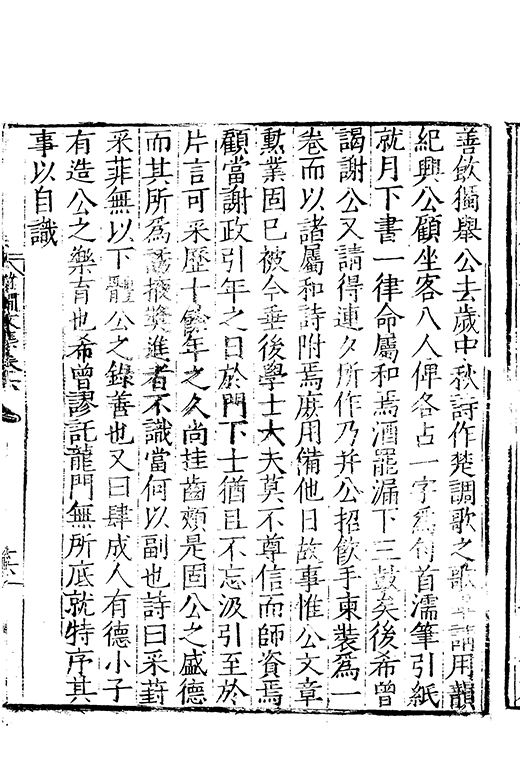 善飲獨舉公去歲中秋詩作楚調歌之歌畢請用韻
紀興公顧坐客八人俾各占一字爲倡首濡筆引紙
就月下書一律命屬和焉酒罷漏下三鼓矣後希曾
謁謝公又請得連夕所作乃并公招飲手柬裝爲一
卷而以諸屬和詩附焉庶用備他日故事惟公文章
勲業固已被今垂後學士大夫莫不尊信而師資焉
顧當謝政引年之日於門下士猶且不忘汲引至於
片言可采歷十餘年之久尚挂齒頰是固公之盛德
而其所爲誘掖奬進者不識當何以副也詩曰采葑
采菲無以下體公之錄善也又曰肆成人有德小子
有造公之樂育也希曾謬託龍門無所底就特序其
事以自識